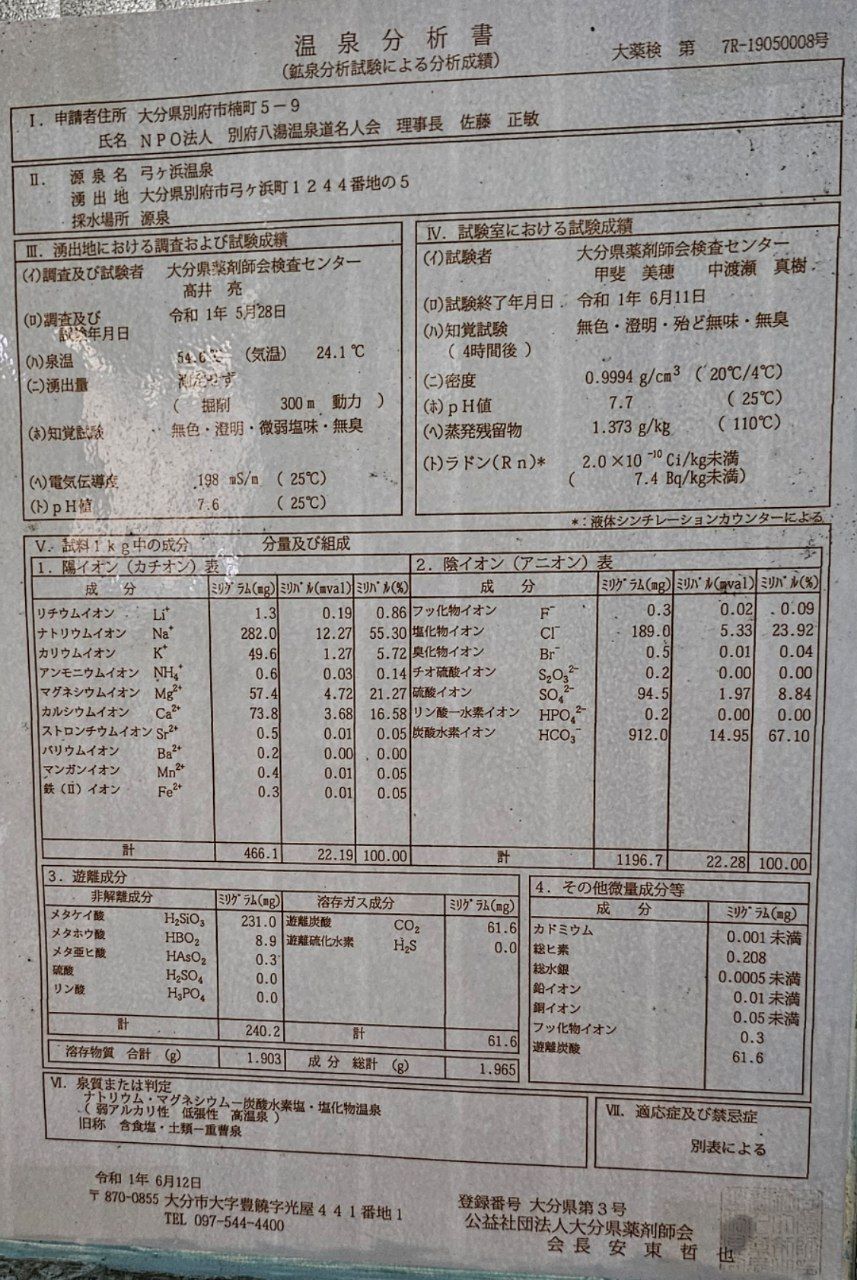 温泉分析書
(鉱泉分析試験による分析成績)
大薬検 第 7R-19050008号
Ⅰ. 申請者住所 大分県別府市楠町5-9
氏名 NPO法人 別府八湯温泉道名人会 理事長 佐藤 正敏
Ⅱ. 源泉名 弓ヶ浜温泉
湧出地 大分県別府市弓ヶ浜町1244番地の5
採水場所 源泉
Ⅲ. 湧出地における調査および試験成績
(イ)調査及び試験者 大分県薬剤師会検査センター
高井 亮
(ロ)調査及び 令和 1年 5月28日
試験年月日
(ハ)泉温 54.6 ℃ (気温) 24.1 ℃
(ニ)湧出量 測定せず
( 掘削 300 m 動力 )
(ホ)知覚試験 無色・澄明・微弱塩味・無臭
(ヘ)電気伝導度 198 mS/m ( 25℃)
(ト)pH値 7.6 ( 25℃)
Ⅳ. 試験室における試験成績
(イ)試験者 大分県薬剤師会検査センター
甲斐 美穂 中渡瀬 真樹
(ロ)試験終了年月日. 令和 1年 6月11日
(ハ)知覚試験 無色・澄明・殆ど無味・無臭
( 4時間後 )
(ニ)密度 0.9994 g/cm³ ( 20℃/4℃)
(ホ)pH値 7.7 ( 25℃)
(ヘ)蒸発残留物 1.373 g/kg ( 110℃)
(ト)ラドン(Rn)* 2.0×10⁻¹⁰ Ci/kg未満
( 7.4 Bq/kg未満)
*:液体シンチレーションカウンターによる
Ⅴ. 試料1kg中の成分 分量及び組成
1. 陽イオン(カチオン)表
成 分 ミリグラム(mg) ミリバル(mval) ミリバル(%)
リチウムイオン Li⁺ 1.3 0.19 0.86
ナトリウムイオン Na⁺ 282.0 12.27 55.30
カリウムイオン K⁺ 49.6 1.27 5.72
アンモニウムイオン NH₄⁺ 0.6 0.03 0.14
マグネシウムイオン Mg²⁺ 57.4 4.72 21.27
カルシウムイオン Ca²⁺ 73.8 3.68 16.58
ストロンチウムイオン Sr²⁺ 0.5 0.01 0.05
バリウムイオン Ba²⁺ 0.2 0.00 0.00
マンガンイオン Mn²⁺ 0.4 0.01 0.05
鉄(Ⅱ)イオン Fe²⁺ 0.3 0.01 0.05
計 466.1 22.19 100.00
2. 陰イオン(アニオン)表
成 分 ミリグラム(mg) ミリバル(mval) ミリバル(%)
フッ化物イオン F⁻ 0.3 0.02 0.09
塩化物イオン Cl⁻ 189.0 5.33 23.92
臭化物イオン Br⁻ 0.5 0.01 0.04
チオ硫酸イオン S₂O₃²⁻ 0.2 0.00 0.00
硫酸イオン SO₄²⁻ 94.5 1.97 8.84
リン酸一水素イオン HPO₄²⁻ 0.2 0.00 0.00
炭酸水素イオン HCO₃⁻ 912.0 14.95 67.10
計 1196.7 22.28 100.00
3. 遊離成分
非解離成分 ミリグラム(mg)
メタケイ酸 H₂SiO₃ 231.0
メタホウ酸 HBO₂ 8.9
メタ亜ヒ酸 HAsO₂ 0.3
硫酸 H₂SO₄ 0.0
リン酸 H₃PO₄ 0.0
計 240.2
溶存ガス成分 ミリグラム(mg)
遊離炭酸 CO₂ 61.6
遊離硫化水素 H₂S 0.0
計 61.6
溶存物質 合計 (g) 1.903 成分 総計 (g) 1.965
4. その他微量成分等
成 分 ミリグラム(mg)
カドミウム 0.001 未満
総ヒ素 0.208
総水銀 0.0005 未満
鉛イオン 0.01 未満
銅イオン 0.05 未満
フッ化物イオン 0.3
遊離炭酸 61.6
Ⅵ. 泉質または判定
ナトリウム・マグネシウム-炭酸水素塩・塩化物温泉
( 弱アルカリ性 低張性 高温泉 )
旧称 含食塩・土類-重曹泉
Ⅶ. 適応症及び禁忌症
別表による
令和 1年 6月12日
〒870-0855 大分市大字豊饒字光屋441番地1
TEL 097-544-4400
登録番号 大分県第3号
公益社団法人大分県薬剤師会
会長 安東哲也